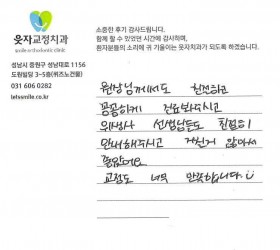 웃자교정치과
smile orthodontic clinic
성남시 중원구 성남대로 1156
도림빌딩 3~5층(위즈노건물)
031 606 0282
letssmile.co.kr
소중한 후기 감사드립니다.
함께 할 수 있었던 시간에 감사하며,
환자분들의 소리에 귀 기울이는 웃자치과가 되도록 하겠습니다.
원장님께서도 친절하고
꼼꼼하게 진료봐주시고
위생사 선생님들도 친절히
안내해주시고 계신거 같아서
좋았어요
교정도 너무 만족합니다 :)